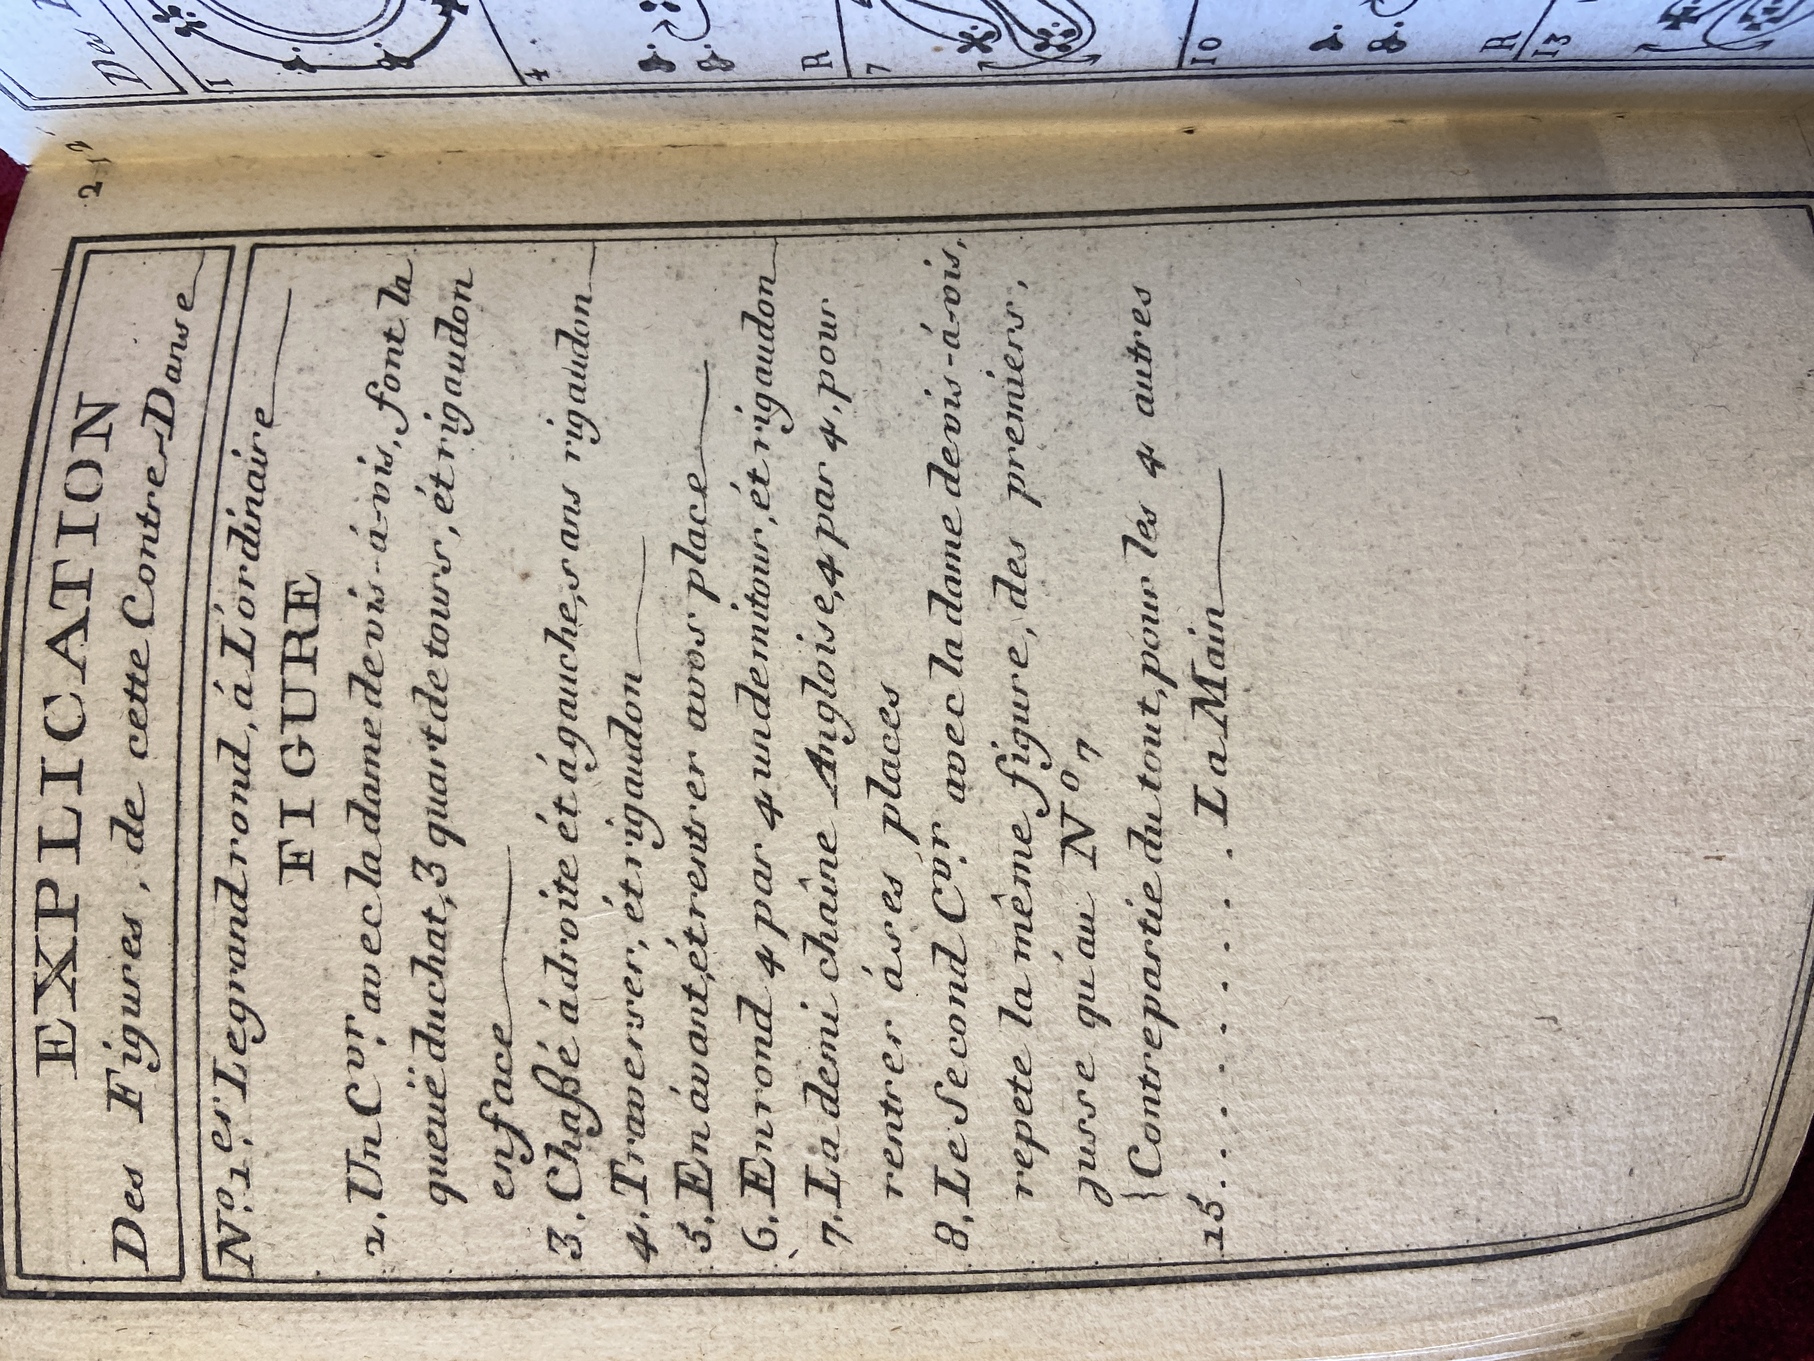 219
EXPLICATION
Des Figures, de cette Contre-Danse
N.º 1.er Le grand rond, á L'ordinaire
FIGURE
2. Un C.vor avec la dame de vis-á-vis, font la
queuë du chat, 3 quart de tours, ét rigaudon
en face
3. Chaßé á droite ét á gauche, sans rigaudon
4. Traverser, ét rigaudon
5. En ávant, ét rentrer a vos place
6. En rond 4 par 4 un demi tour, ét rigaudon
7. La demi chaîne Angloise, 4 par 4, pour
rentrer á ses places
8. Le Second C.vor avec la dame de vis-á-vis,
repete la même figure, des premiers,
jusse qu'au Nº 7
{ Contrepartie du tout, pour les 4 autres
15. . . . . . . . . La Main
Des
1
4
R
7
10
R
13